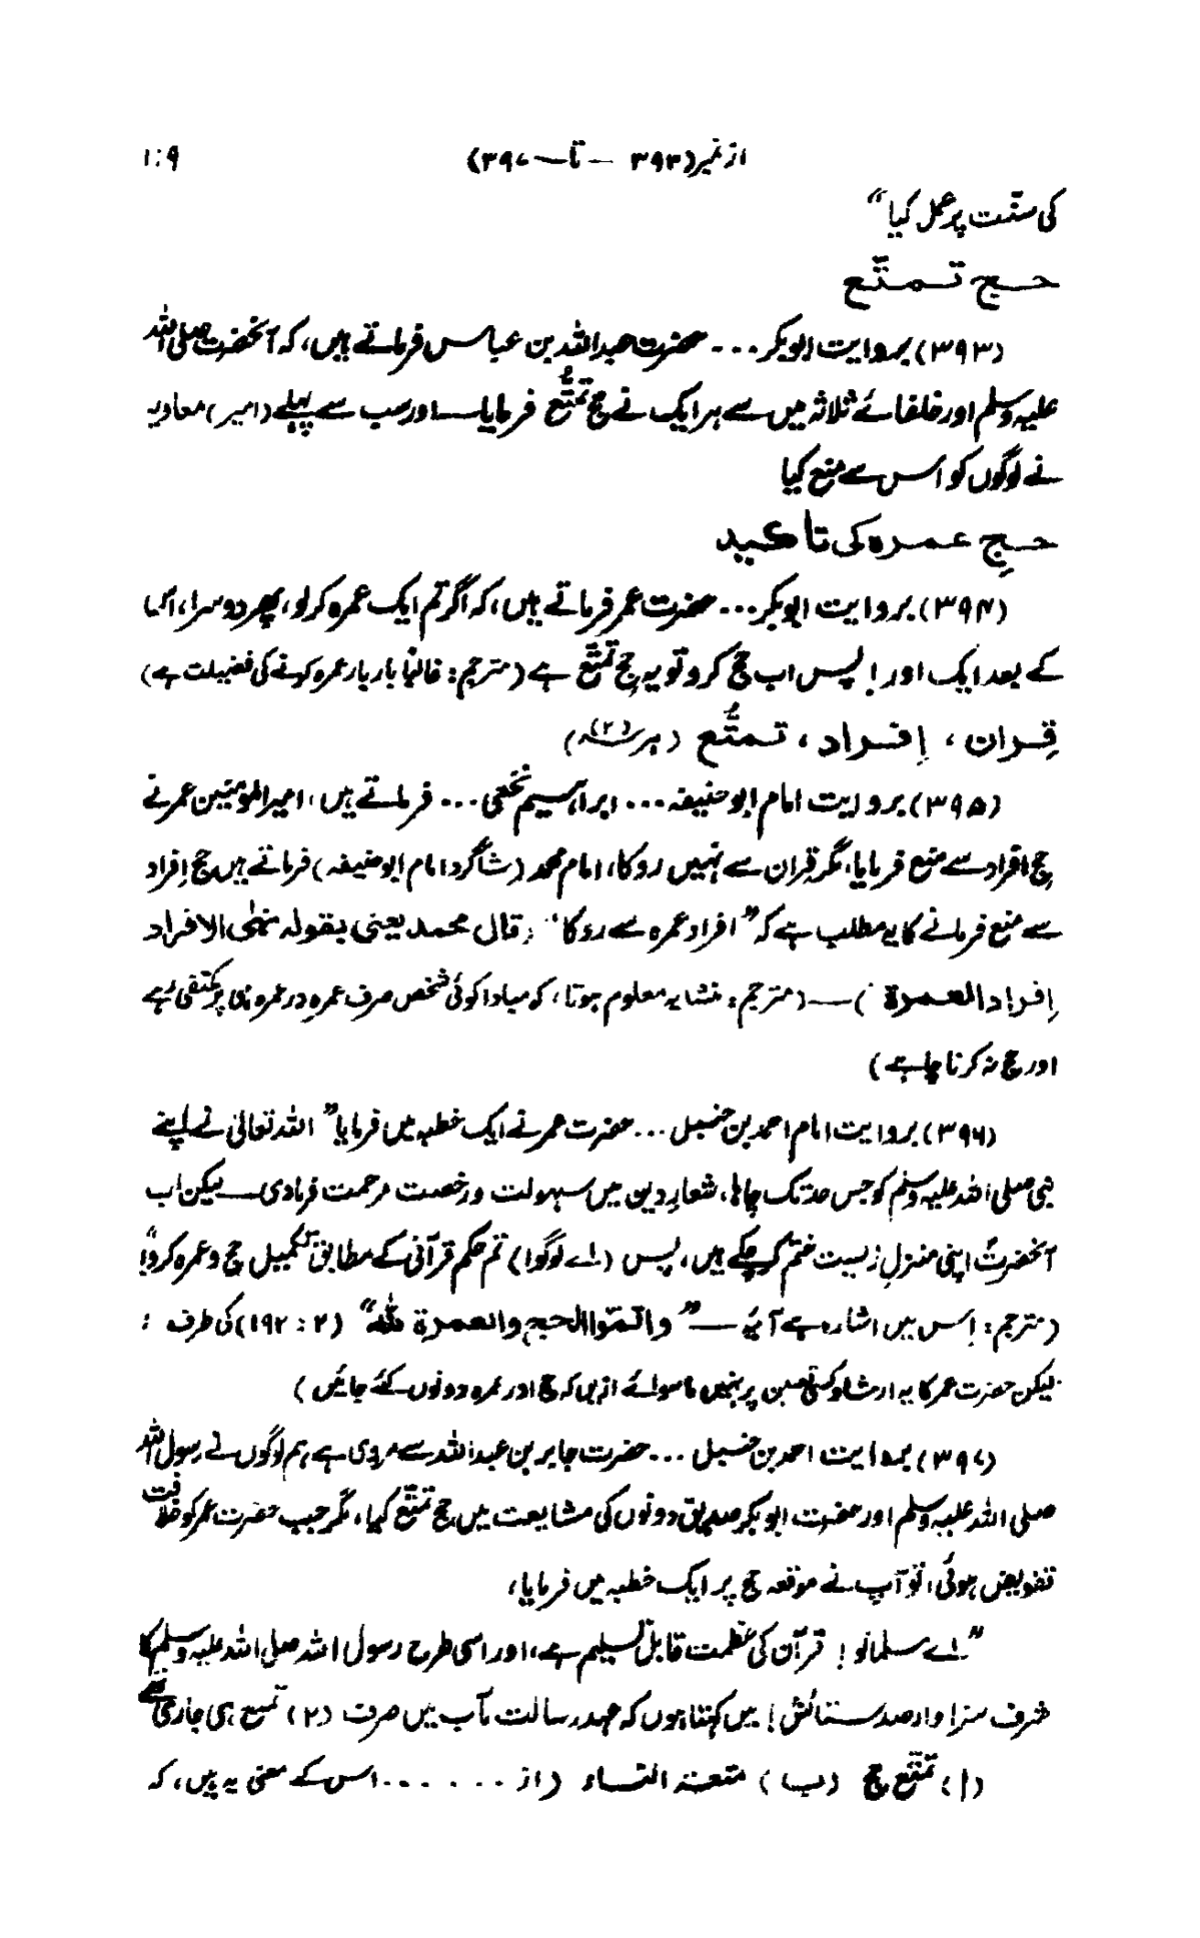 از نمبر (۳۹۳ — تا — ۳۹۷) ۱۰۹
کی سنّت پر عمل کیا“
حج تمتّع
(۳۹۳) بروایت ابوبکر... حضرت عبداللہ بن عباس فرماتے ہیں، کہ آنحضرت صلی اللہ
علیہ وسلم اور خلفائے ثلاثہ میں سے ہر ایک نے حج تمتُّع فرمایا — اور سب سے پہلے (امیر) معاویہ
نے لوگوں کو اس سے منع کیا
حجِ عمرہ کی تاکید
(۳۹۴) بروایت ابوبکر... حضرت عمر فرماتے ہیں، کہ اگر تم ایک عمرہ کر لو، پھر دوسرا، اس
کے بعد ایک اور! پس اب حج کرو تو یہ حجِ تمتّع ہے (مترجم: غالباً بار بار عمرہ کرنے کی فضیلت ہے)
قِران، اِفراد، تمتُّع (ہر سہ)(۲)
(۳۹۵) بروایت امام ابو حنیفہ... ابراہیم نخعی... فرماتے ہیں، امیر المؤمنین عمر نے
حج افراد سے منع فرمایا، مگر قِران سے نہیں روکا، امام محمد (شاگرد امام ابو حنیفہ) فرماتے ہیں حج اِفراد
سے منع فرمانے کا یہ مطلب ہے کہ ”افراد عمرہ سے روکا“ (قال محمد یعنی بقولہ نہٰی الافراد
اِفراد العمرة) — (مترجم: منشا یہ معلوم ہوتا، کہ مبادا کوئی شخص صرف عمرہ در عمرہ ہی پر مکتفی رہے
اور حج نہ کرنا چاہے)
(۳۹۶) بروایت امام احمد بن حنبل... حضرت عمر نے ایک خطبہ میں فرمایا ”اللہ تعالیٰ نے اپنے
نبی صلی اللہ علیہ وسلم کو جس حد تک چاہا، شعارِ دین میں سہولت و رخصت مرحمت فرما دی — لیکن اب
آنحضرتؐ اپنی منزلِ زیست ختم کر چکے ہیں، پس (اے لوگو!) تم حکم قرآنی کے مطابق تکمیل حج و عمرہ کرو“!
(مترجم: اِس میں اشارہ ہے آیۂ — ”واتمّوا الحج والعمرة للہ“ (۲: ۱۹۲) کی طرف:
لیکن حضرت عمر کا یہ ارشاد کسی تعین پر نہیں ماسوائے ازیں کہ حج اور عمرہ دونوں کئے جائیں)
(۳۹۷) بروایت احمد بن حنبل... حضرت جابر بن عبداللہ سے مروی ہے، ہم لوگوں نے رسول اللہ
صلی اللہ علیہ وسلم اور حضرت ابوبکر صدیق دونوں کی مشایعت میں حج تمتّع کیا، مگر جب حضرت عمر کو خلافت
تفویض ہوئی، تو آپ نے موقعہ حج پر ایک خطبہ میں فرمایا،
”اے مسلمانو! قرآن کی عظمت قابل تسلیم ہے، اور اسی طرح رسول اللہ صلی اللہ علیہ وسلم کا
شرف سزاوار صد ستائش! میں کہتا ہوں کہ عہد رسالت مآب میں صرف (۲) تمتع ہی جاری تھے
(ا) تمتّع حج (ب) متعة النساء (از ...... اس کے معنی یہ ہیں، کہ